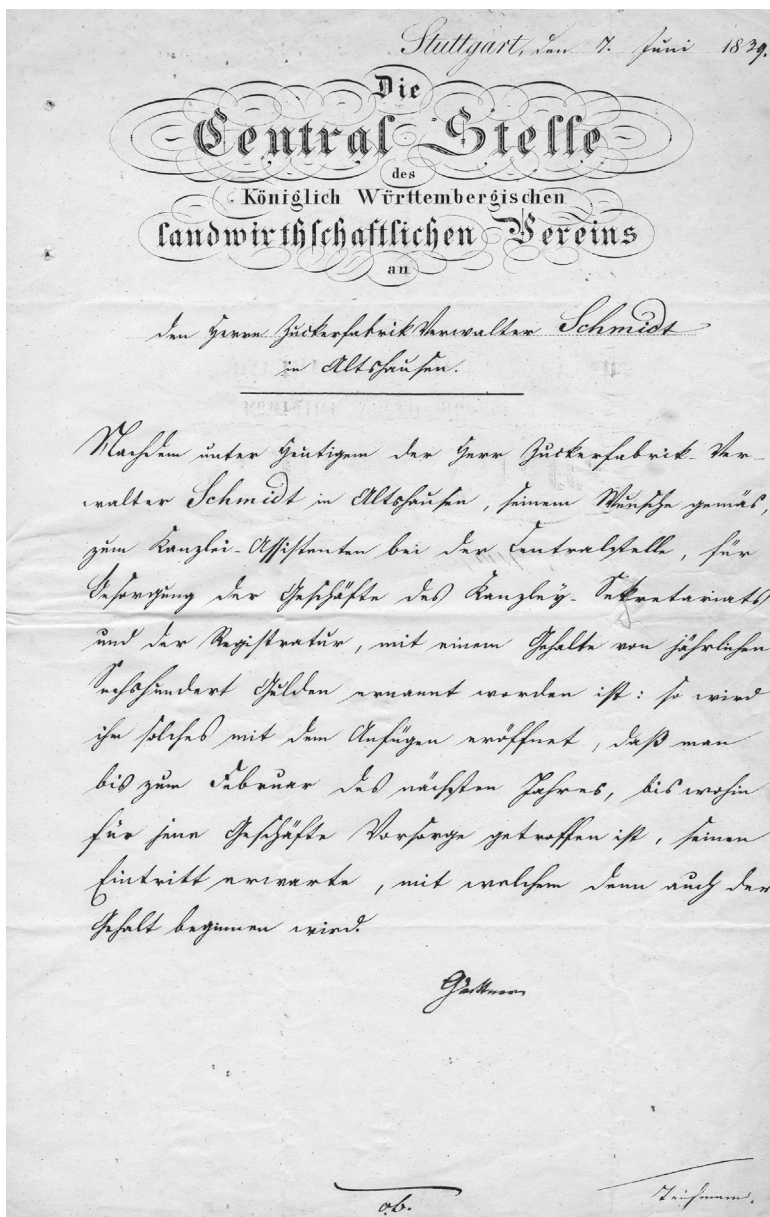 Stuttgart, den 7. Juni 1839.
Die
Central Stelle
des
Königlich Württembergischen
landwirthschaftlichen Vereins
an
den Herrn Zuckerfabrik Verwalter Schmidt
in Altshausen.
Nachdem unter Heutigem der Herr Zuckerfabrik-Ver-
walter Schmidt in Altshausen, seinem Wunsche gemäs,
zum Kanzlei-Assistenten bei der Centralstelle, für
Besorgung der Geschäfte des Kanzley-Sekretariats
und der Registratur, mit einem Gehalte von jährlichen
Sechshundert Gulden ernannt worden ist: so wird
ihm solches mit dem Anfügen eröffnet, daß man
bis zum Februar des nächsten Jahres, bis wohin
für jene Geschäfte Vorsorge getroffen ist, seinen
Eintritt erwarte, mit welchem denn auch der
Gehalt beginnen wird.